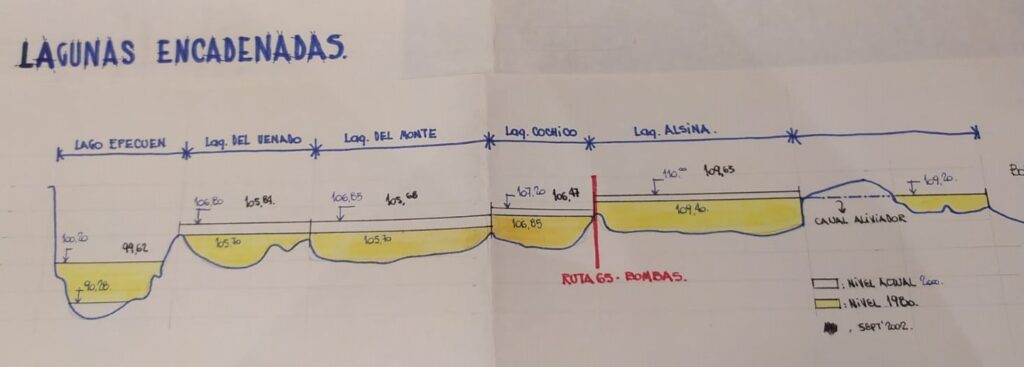 LAGUNAS ENCADENADAS.
LAGO EPECUEN
Laq. DEL VENADO
Laq. DEL MONTE
Laq. COCHICO
Laq. ALSINA.
106.80
105,84.
106,85
105,68
107,20
106,47
110,00
109,65
109,20
100,20
99,62
105,70
105,70
106,85
109,40
CAUAL ALIVIADOR
90,28
RUTA 65-BOMBAS.
: NIVEL ACTUAL 2000.
: NIVEL 1980.
. SEPT' 2002.